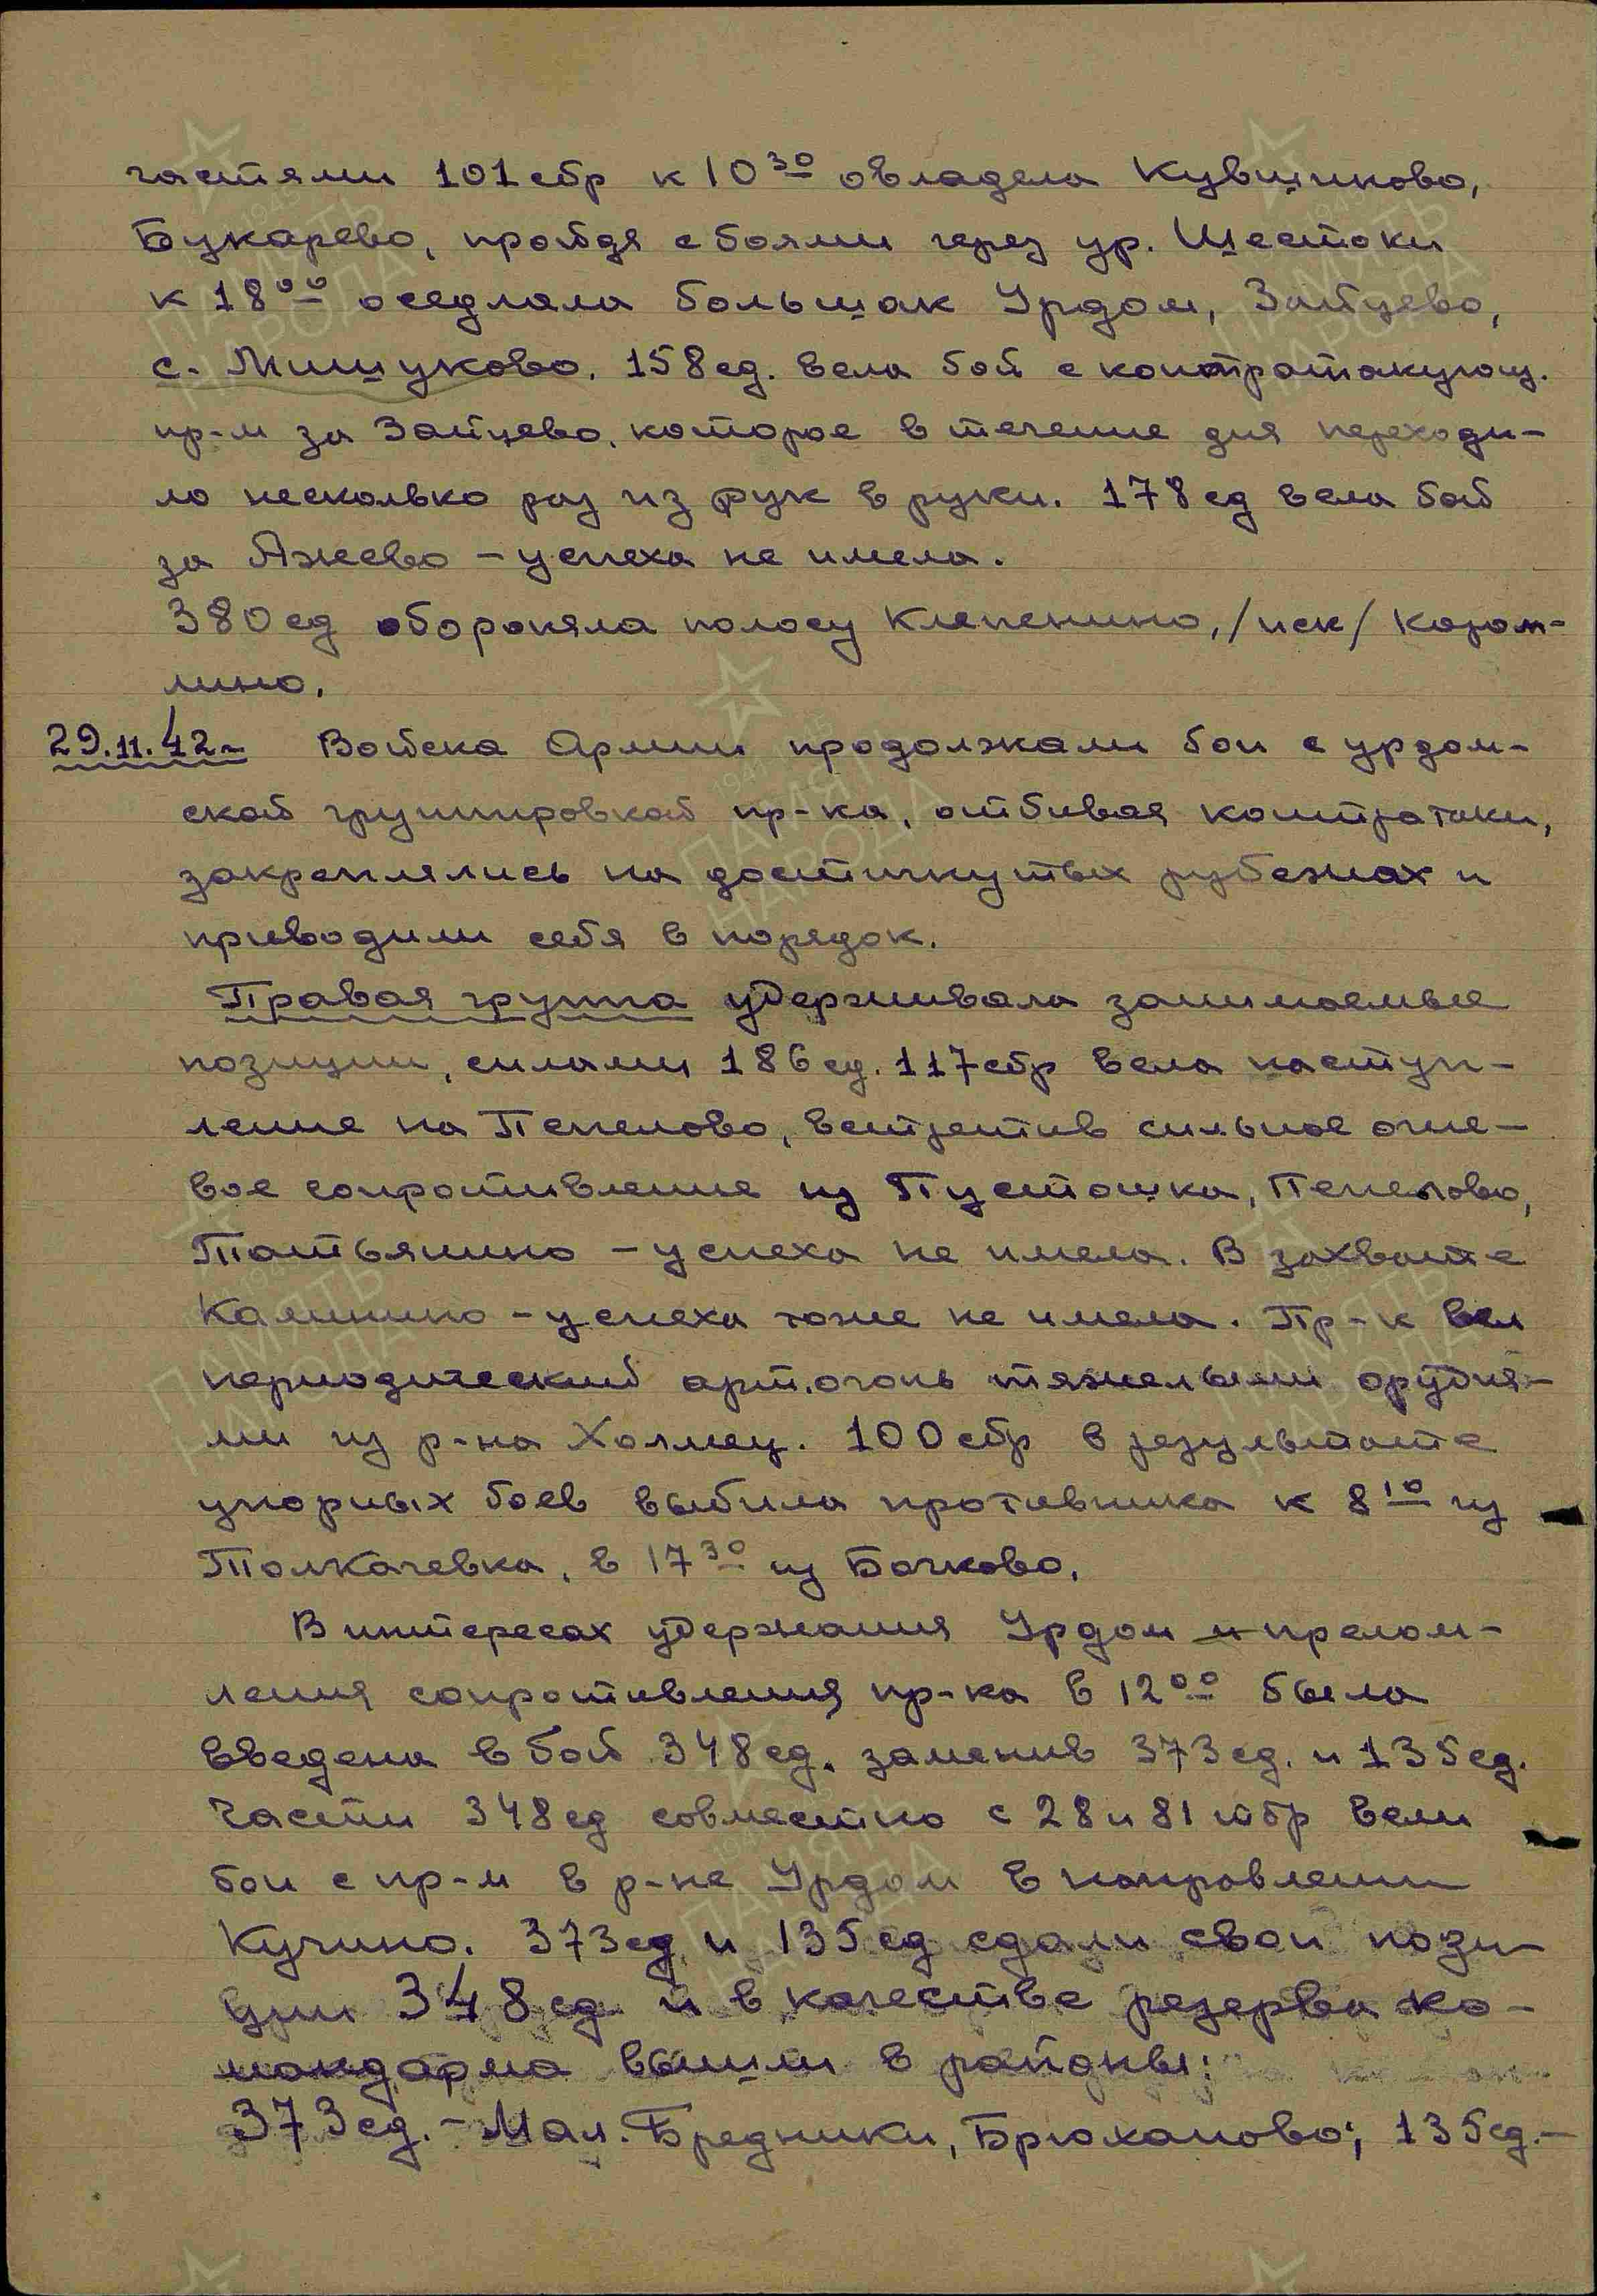 частями 101 сбр к 10 30 овладела Кувшиново,
Букарево, пройдя с боями через ур. Шестоки
к 18 00 оседлала большак Урдом, Зайцево,
с. Мишуково. 158 сд. вела бой с контратакующ.
пр-м за Зайцево, которое в течение дня переходи-
ло несколько раз из рук в руки. 178 сд вела бой
за Ажево – успеха не имела.
380 сд обороняла полосу Клепенино, /иск/ Козом-
лино.
29.11.42 – Войска Армии продолжали бои с урдом-
ской группировкой пр-ка, отбивая контратаки,
закреплялись на достигнутых рубежах и
приводили себя в порядок.
Правая группа удерживала занимаемые
позиции, силами 186 сд. 117 сбр вела наступ-
ление на Пепелово, встретив сильное огне-
вое сопротивление из Пустошка, Пепелово,
Татьянино – успеха не имела. В захвате
Калинино – успеха тоже не имела. Пр-к вел
периодический арт.огонь тяжелыми орудия-
ми из р-на Холмец. 100 сбр в результате
упорных боев выбила противника к 8 10 из
Толкачевка, в 17 30 из Бочково.
В интересах удержания Урдом и прелом-
ления сопротивления пр-ка в 12 00 была
введена в бой 348 сд. заменив 373 сд. и 135 сд.
Части 348 сд совместно с 28 и 81 тбр вели
бои с пр-м в р-не Урдом в направлении
Кучино. 373 сд и 135 сд сдали свои пози-
ции 348 сд и в качестве резерва ко-
мандарма вышли в районы:
373 сд. – Мал. Бредники, Брюханово; 135 сд. –
ПАМЯТЬ
НАРОДА